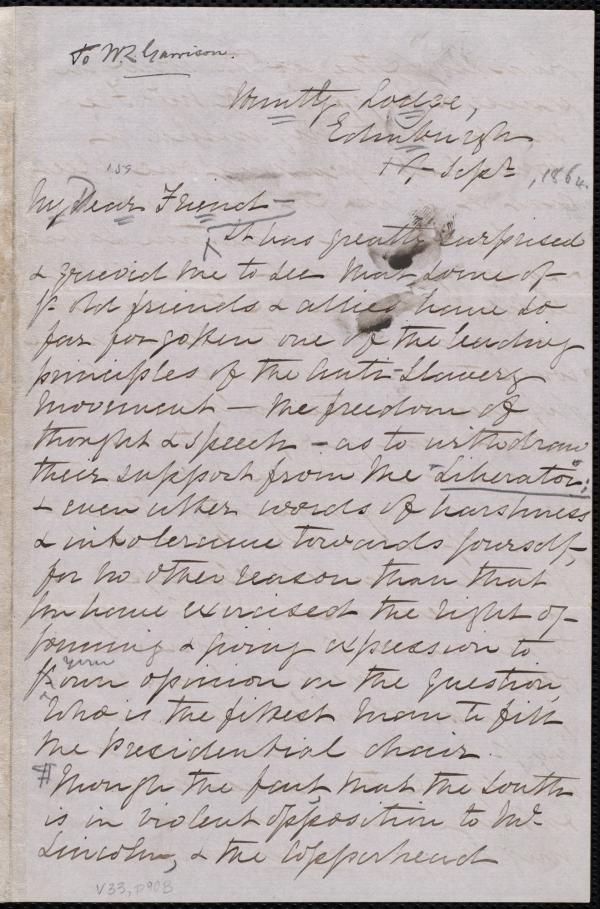 To W. L. Garrison.
Huntly Lodge,
Edinburgh
Sepr, 1864.
159
My Dear Friend —
It has greatly surprised
& grieved me to see that some of
yr old friends & allies have so
far forgotten one of the leading
principles of the Anti-Slavery
movement — the freedom of
thought & speech — as to withdraw
their support from the "Liberator";
& even utter words of harshness
& intolerance towards yourself,
for no other reason than that
you have exercised the right of
forming & giving expression to
your
yr own opinion on the question,
Who is the fittest man to fill
the Presidential chair.
Though the fact, that the South
is in violent opposition to Mr.
Lincoln, & the Copperhead
V33, p90B